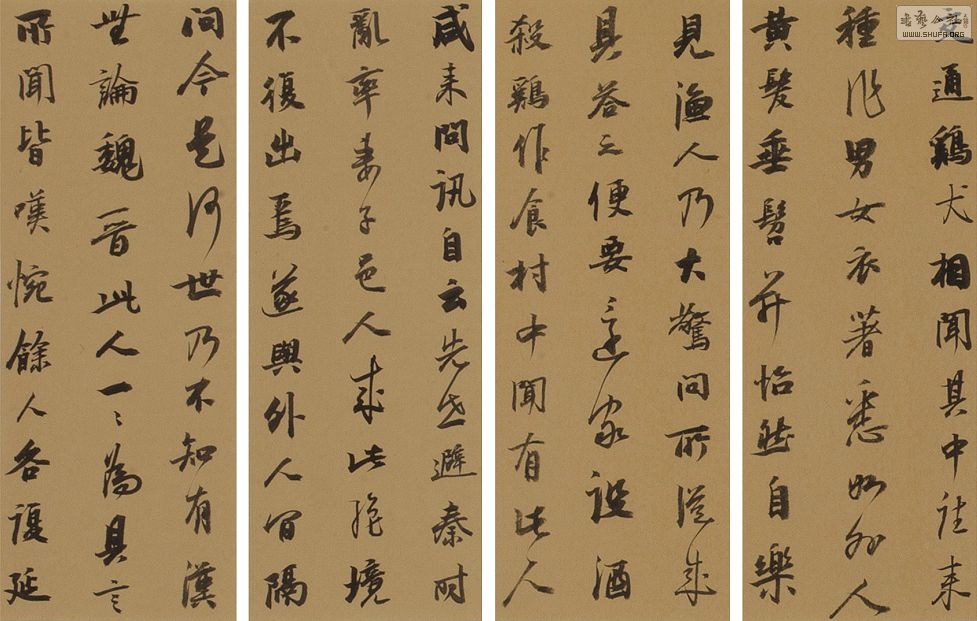 交通鷄犬相聞其中往来
種作男女衣著悉如外人
黄髮垂髫并怡然自樂
見漁人乃大驚問所從來
具荅之便要還家設酒
殺鷄作食村中聞有此人
咸来問訊自云先世避秦时
亂率妻子邑人來此絶境
不復出焉遂與外人間隔
问今是何世乃不知有漢
無論魏晋此人一〻為具言
所聞皆嘆惋餘人各復延
WWW.SHUFA.ORG